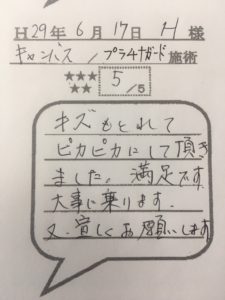 H29年 6月 17日 H 様
キャンバス / プラチナガード施術
★★★
★★
5/5
キズもとれて
ピカピカにして頂き
ました。満足です。
大事に乗ります。
又、宜しくお願いします